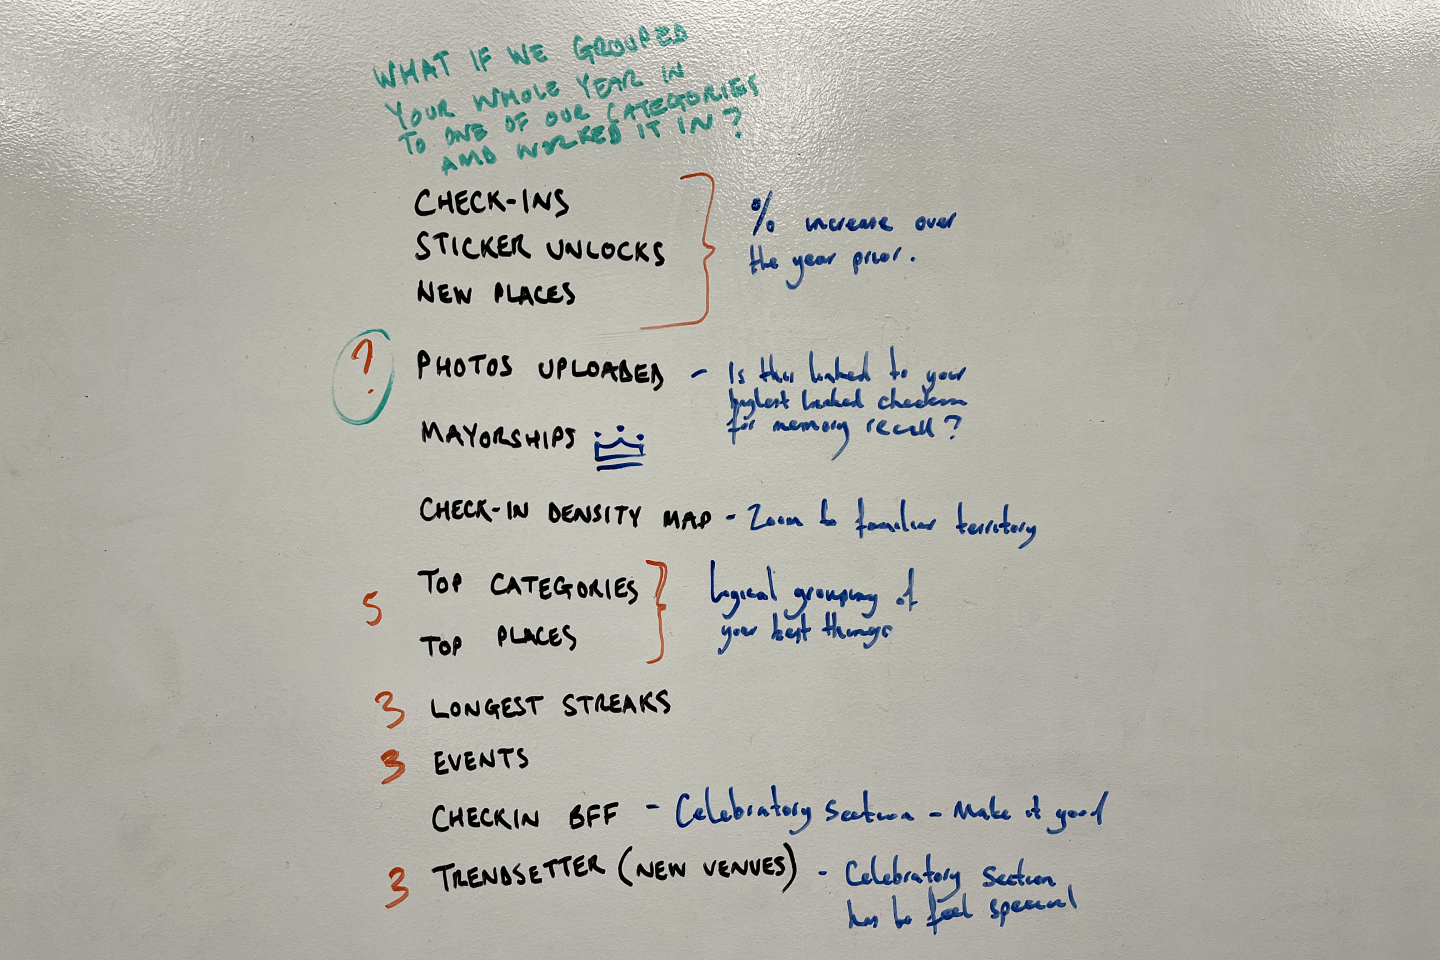 WHAT IF WE GROUPED
YOUR WHOLE YEAR IN
TO ONE OF OUR CATEGORIES
AND WORKED IT IN?
CHECK-INS
STICKER UNLOCKS
NEW PLACES
% increase over
the year prior.
?
PHOTOS UPLOADED - Is this linked to your
highest linked checkin
for memory recall?
MAYORSHIPS
CHECK-IN DENSITY MAP - Zoom to familiar territory
5
TOP CATEGORIES
TOP PLACES
Logical grouping of
your best things
3 LONGEST STREAKS
3 EVENTS
CHECKIN BFF - Celebratory Section - Make it good
3 TRENDSETTER (NEW VENUES) - Celebratory Section
has to feel special